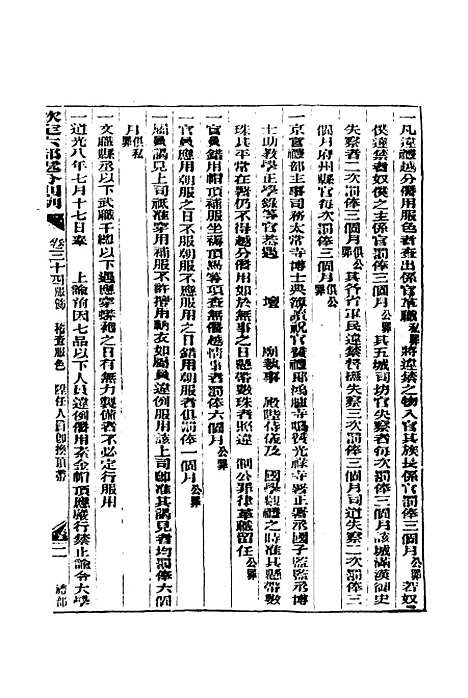 一凡違禮越分僭用服色者查出係官革職私罪將違禁之物入官其族長係官罰俸三個月公罪若奴
僕違禁者奴僕之主係官罰俸三個月公罪其五城司坊官失察者每次罰俸三個月該城滿漢御史
失察者二次罰俸三個月俱公罪其各省軍民違禁督撫失察三次罰俸三個月司道失察二次罰俸三
個月府州縣官每次罰俸三個月俱公罪
一京官禮部主事司務太常寺博士典簿讀祝官贊禮郎鴻臚寺鳴贊光祿寺署正署丞國子監監丞博
士助教學正學錄等官若遇 壇 廟執事 殿階侍儀及 國學觀禮之時准其懸帶數
珠其平常在署仍不得越分僭用如於無事之日懸帶數珠者照違 制公罪律革職留任公罪
一官員錯用帽頂補服坐褥頂馬等項查無僭越情事者罰俸六個月公罪
一官員應用朝服之日不服朝服應不用朝服之日錯用朝服者俱罰俸一個月公罪
一屬員謁見上司祇准穿用補服不許擅用朝衣如屬員違例服用該上司卽准其謁見者均罰俸六個
月俱私罪
一文職縣丞以下武職千總以下遇應穿蟒袍之日有無力製備者不必定行服用
一道光八年七月十七日奉 上諭前因七品以下人員違例僭用素金帽頂應嚴行禁止諭令大學
欽定六部處分則例 卷三十四服飾 稽查服色 陞任人員卽換頂帶 二 禮部